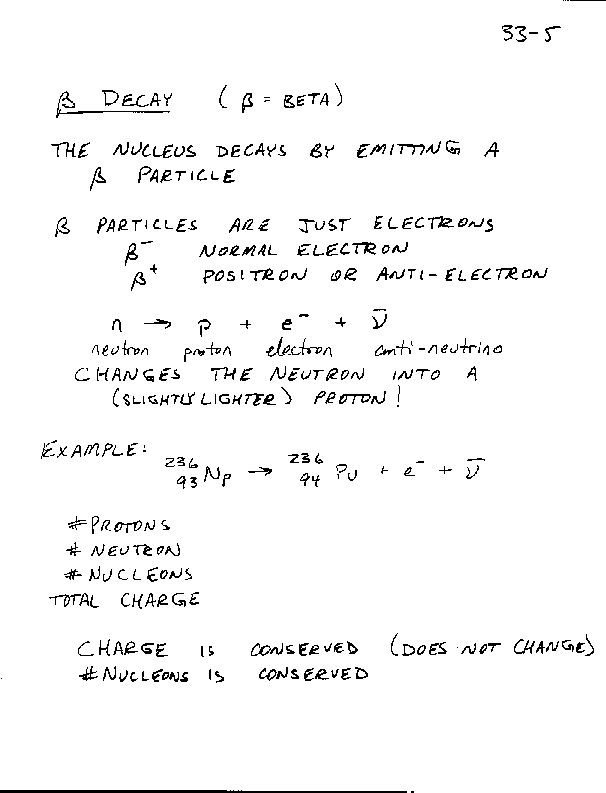 33-5
β DECAY ( β = BETA)
THE NUCLEUS DECAYS BY EMITTING A
β PARTICLE
β PARTICLES ARE JUST ELECTRONS
β⁻ NORMAL ELECTRON
β⁺ POSITRON OR ANTI-ELECTRON
n → p + e⁻ + ν̅
neutron proton electron anti-neutrino
CHANGES THE NEUTRON INTO A
(SLIGHTLY LIGHTER) PROTON!
EXAMPLE: ²³⁶₉₃Np → ²³⁶₉₄Pu + e⁻ + ν̅
#PROTONS
# NEUTRON
# NUCLEONS
TOTAL CHARGE
CHARGE IS CONSERVED (DOES NOT CHANGE)
#NUCLEONS IS CONSERVED